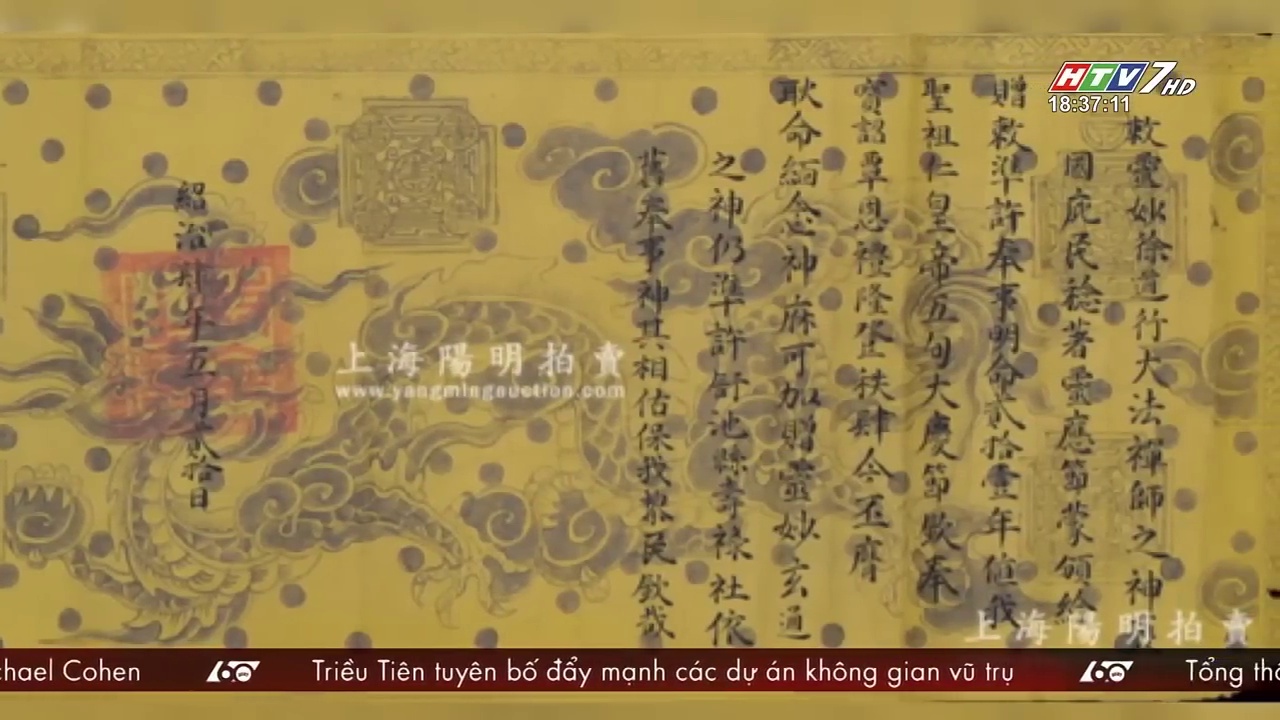 HTV7 HD
18:37:11
敕靈妙徐道行大法禪師之神
國庇民稔著靈應節蒙頒給
贈敕準許奉事明命貳拾壹年值我
聖祖仁皇帝五旬大慶節欽奉
寶詔覃恩禮隆登秩肆今丕膺
耿命緬念神庥可加贈靈妙玄通
之神仍準許舒池縣壽祿社依
舊奉事神其相佑保我黎民欽哉
紹治肆年五月貳拾日
上海陽明拍賣
www.yangmingauction.com
上海陽明拍賣
chael Cohen
60 giây
Triều Tiên tuyên bố đẩy mạnh các dự án không gian vũ trụ
60 giây
Tổng th